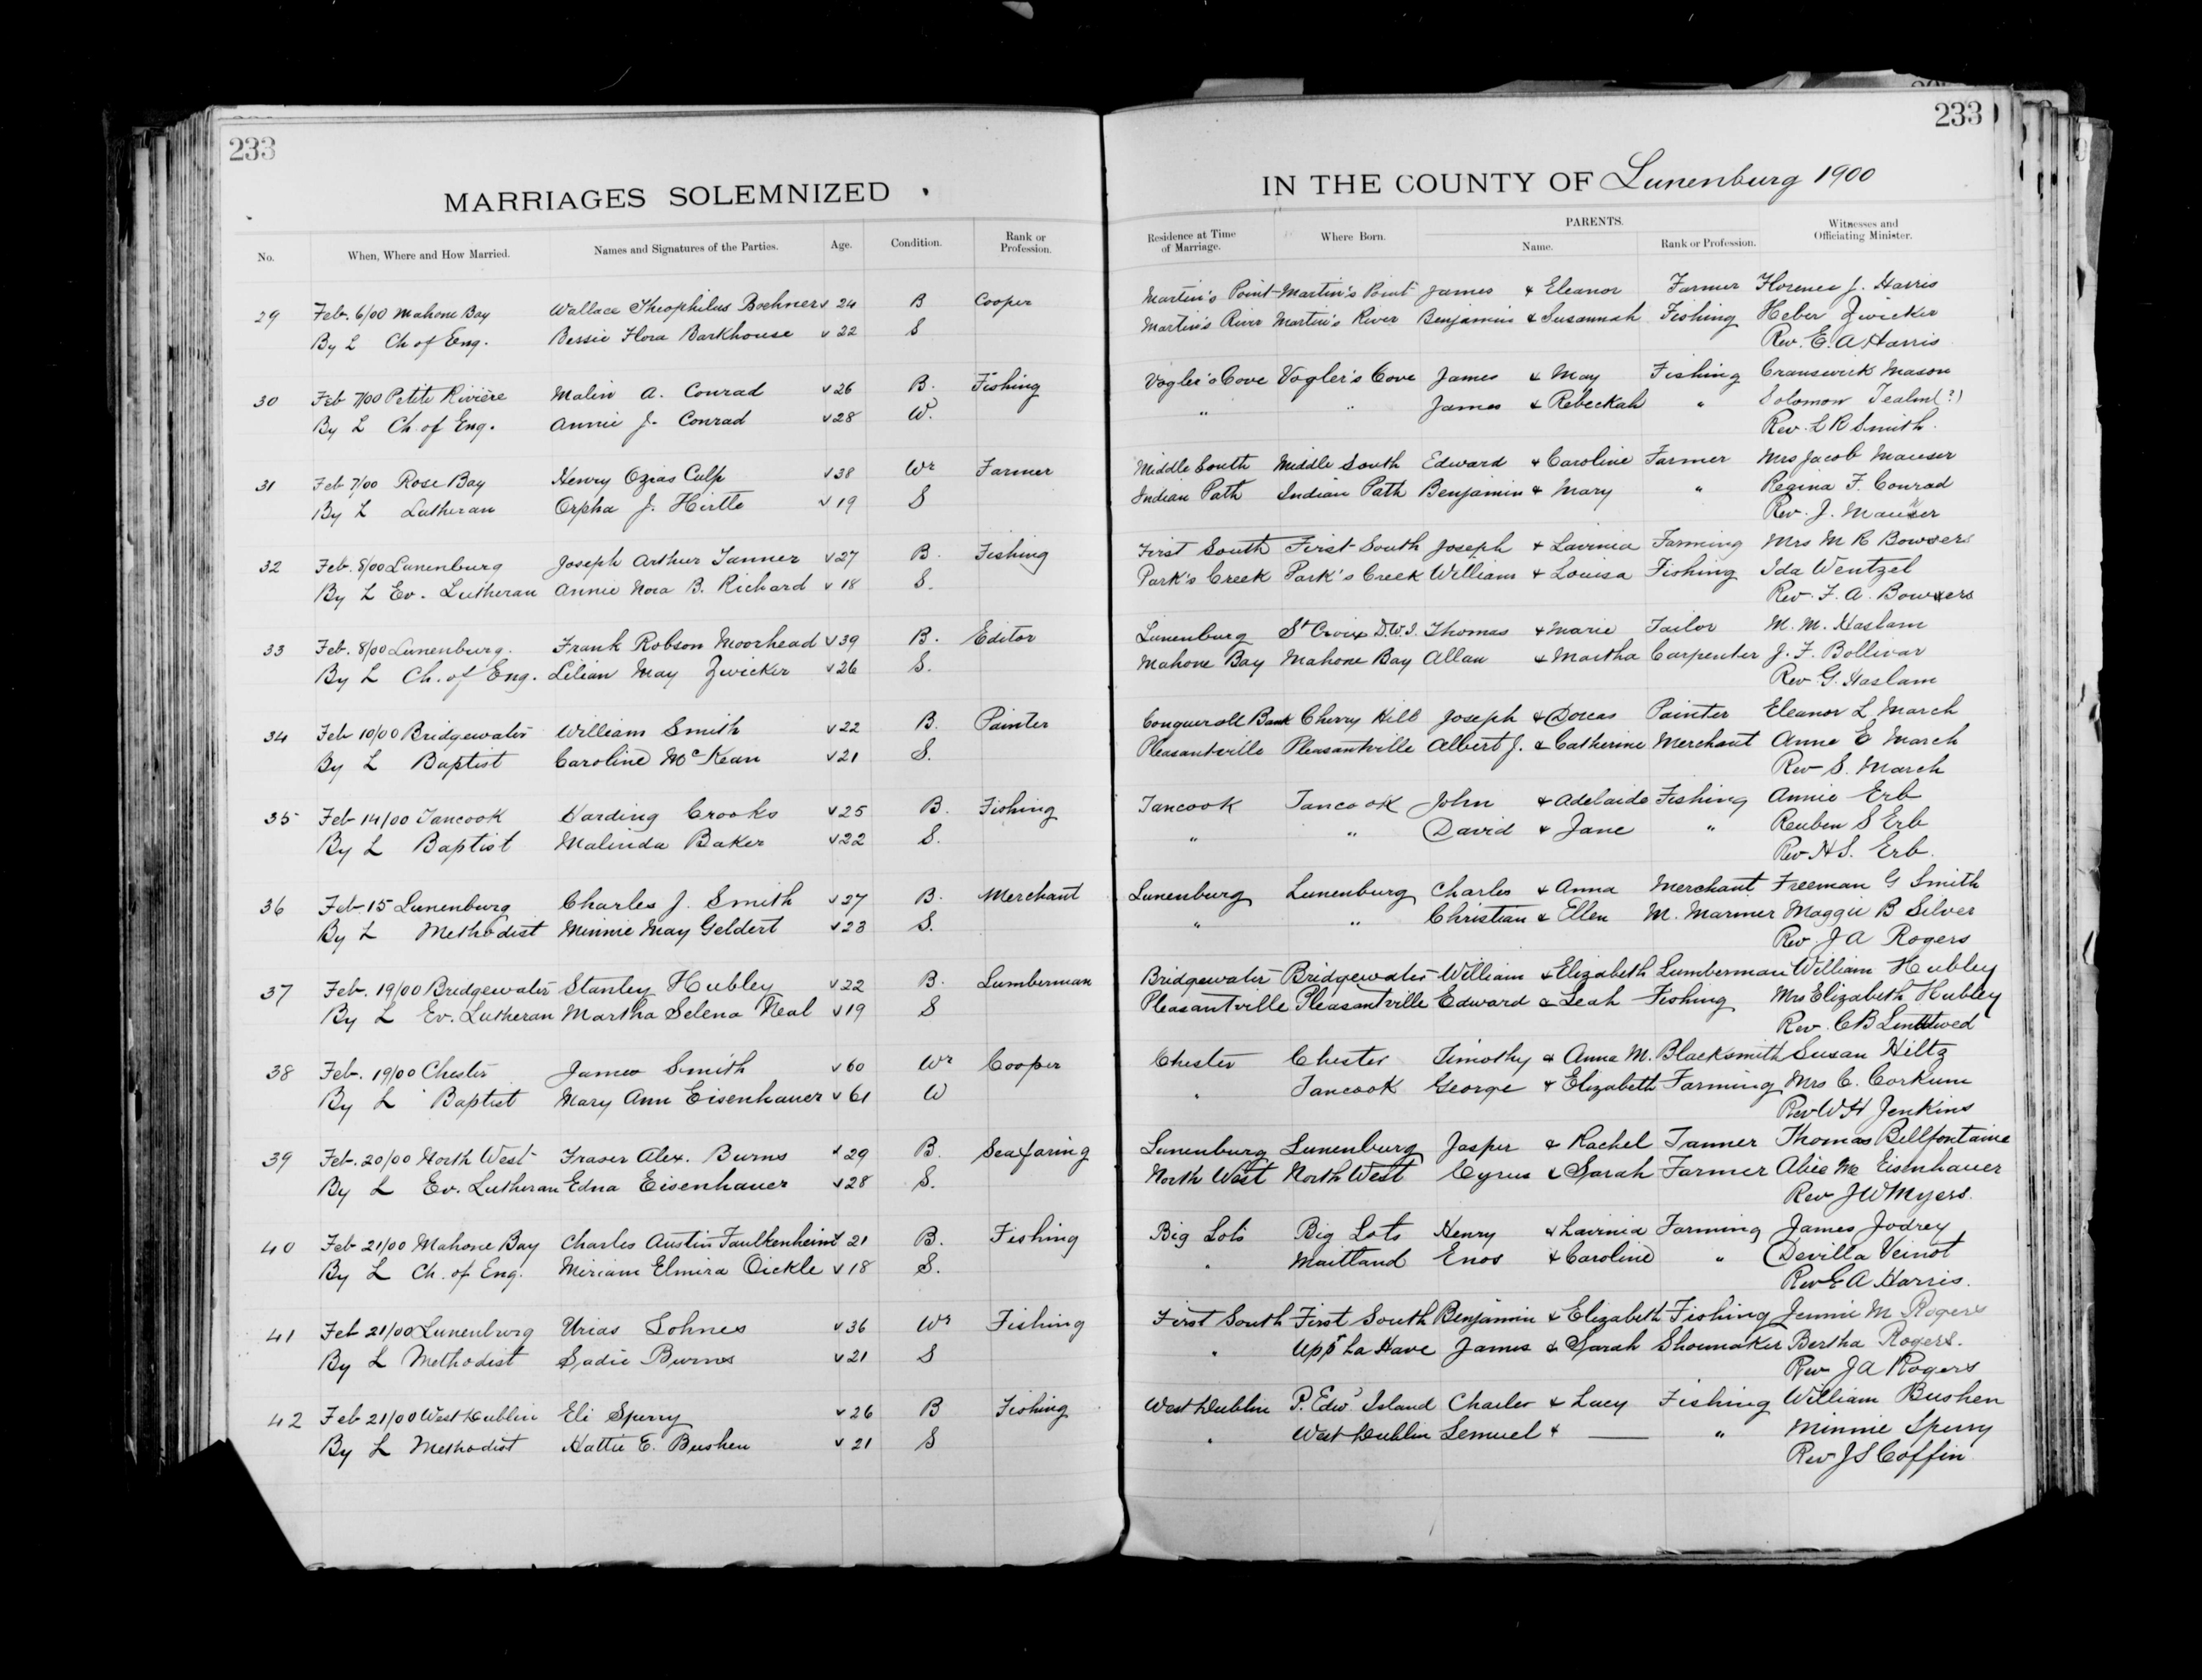 233
233
MARRIAGES SOLEMNIZED
IN THE COUNTY OF Lunenburg 1900
No. When, Where and How Married. Names and Signatures of the Parties. Age. Condition. Rank or Profession. Residence at Time of Marriage. Where Born. PARENTS. Name. Rank or Profession. Witnesses and Officiating Minister.
29 Feb. 6/00 Mahone Bay Wallace Theophilus Boehner 24 B Cooper Martin's Point Martin's Point James & Eleanor Farmer Florence J. Harris
By L Ch of Eng. Bessie Flora Barkhouse 22 S Martin's River Martin's River Benjamin & Susannah Fishing Heber Zwicker
Rev. E. A Harris
30 Feb 7/00 Petite Rivière Malin A. Conrad 26 B. Fishing Vogler's Cove Vogler's Cove James & May Fishing Cranswick Mason
By L Ch. of Eng. Annie J. Conrad 28 W. " " James & Rebeckah " Solomon (?)
Rev. L R Smith.
31 Feb 7/00 Rose Bay Henry Ozias Culp 38 Wr Farmer Middle South Middle South Edward & Caroline Farmer Mrs Jacob Mauser
By L Lutheran Orpha J. Hirtle 19 S Indian Path Indian Path Benjamin & Mary " Regina F. Conrad
Rev. J. Mauser
32 Feb. 8/00 Lunenburg Joseph Arthur Tanner 27 B. Fishing First South First South Joseph & Lavinia Farming Mrs M R Bowsers
By L Ev. Lutheran Annie Nora B. Richard 18 S. Park's Creek Park's Creek William & Louisa Fishing Ida Wentzel
Rev. F. A. Bowsers
33 Feb. 8/00 Lunenburg. Frank Robson Moorhead 39 B. Editor Lunenburg St Croix D.W.I. Thomas & Marie Tailor M. M. Haslam
By L Ch. of Eng. Lilian May Zwicker 26 S. Mahone Bay Mahone Bay Allan & Martha Carpenter J. F. Bollivar
Rev. G. Haslam
34 Feb 10/00 Bridgewater William Smith 22 B. Painter Conquerall Bank Cherry Hill Joseph & Dorcas Painter Eleanor L March
By L Baptist Caroline McKean 21 S. Pleasantville Pleasantville Albert J. & Catherine Merchant Anna E March
Rev S. March
35 Feb 14/00 Tancook Harding Crooks 25 B. Fishing Tancook Tancook John & Adelaide Fishing Annie Erb
By L Baptist Malinda Baker 22 S. " " David & Jane " Reuben S Erb
Rev H S. Erb.
36 Feb. 15 Lunenburg Charles J. Smith 27 B. Merchant Lunenburg Lunenburg Charles & Anna Merchant Freeman G Smith
By L Methodist Minnie May Geldert 23 S. " " Christian & Ellen M. Mariner Maggie B Silver
Rev. J A Rogers
37 Feb. 19/00 Bridgewater Stanley Hubley 22 B. Lumberman Bridgewater Bridgewater William & Elizabeth Lumberman William Hubley
By L Ev. Lutheran Martha Selena Neal 19 S Pleasantville Pleasantville Edward & Leah Fishing Mrs Elizabeth Hubley
Rev. C B
38 Feb. 19/00 Chester James Smith 60 Wr Cooper Chester Chester Timothy & Anna M. Blacksmith Susan Hiltz
By L Baptist Mary Ann Eisenhauer 61 W " Tancook George & Elizabeth Farming Mrs C. Corkum
Rev W H Jenkins
39 Feb. 20/00 North West Fraser Alex. Burns 29 B. Seafaring Lunenburg Lunenburg Jasper & Rachel Tanner Thomas Bellfontaine
By L Ev. Lutheran Edna Eisenhauer 28 S. North West North West Cyrus & Sarah Farmer Alice M Eisenhauer
Rev J W Myers.
40 Feb 21/00 Mahone Bay Charles Austin Faulkenheint 21 B. Fishing Big Lots Big Lots Henry & Lavinia Farming James Jodrey
By L Ch. of Eng. Miriam Elmira Oickle 18 S. " Maitland Enos & Caroline " Devilla Veinot
Rev E A Harris.
41 Feb 21/00 Lunenburg Urias Lohnes 36 Wr Fishing First South First South Benjamin & Elizabeth Fishing Jennie M Rogers
By L Methodist Sadie Burns 21 S " Uppr La Have James & Sarah Shoemaker Bertha Rogers.
Rev J A Rogers
42 Feb 21/00 West Dublin Eli Sperry 26 B Fishing West Dublin P. Edw Island Charles & Lucy Fishing William Bushen
By L Methodist Hattie E. Bushen 21 S " West Dublin Lemuel & — " Minnie Sperry
Rev J S Coffin